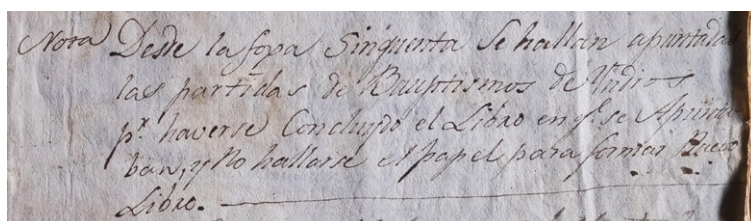 Nota Desde la foxa Sinquenta Se hallan apuntadas
las partidas de Bauptismos de Yndios
pr. haverse Concluydo el Libro en q.e se Apunta
ban, y No hallarse el papel para formar Nuevo
Libro.